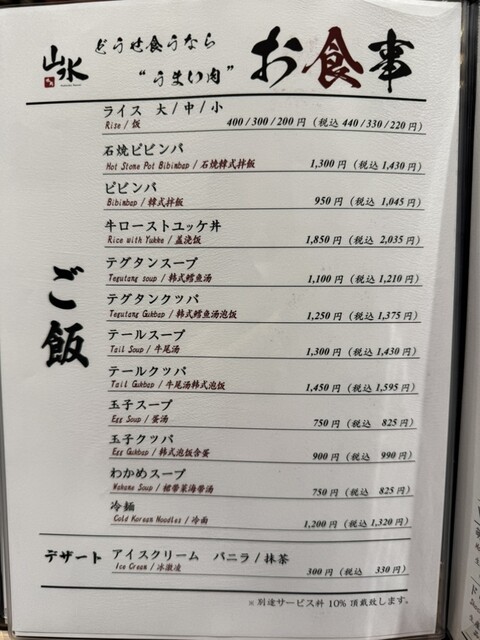 山水
どうせ食うなら
“うまい肉”
お食事
ご飯
ライス 大/中/小
Rise / 饭 400/300/200 円 (税込 440/330/220 円)
石焼ビビンバ
Hot Stone Pot Bibimbap / 石烧韓式拌飯 1,300 円 (税込 1,430 円)
ビビンバ
Bibimbap / 韓式拌飯 950 円 (税込 1,045 円)
牛ローストユッケ丼
Rice with Yukke / 盖浇饭 1,850 円 (税込 2,035 円)
テグタンスープ
Tegutang soup / 韩式鳕鱼汤 1,100 円 (税込 1,210 円)
テグタンクッパ
Tegutang Gukbap / 韩式鳕鱼汤泡饭 1,250 円 (税込 1,375 円)
テールスープ
Tail Soup / 牛尾汤 1,300 円 (税込 1,430 円)
テールクッパ
Tail Gukbap / 牛尾汤韩式泡饭 1,450 円 (税込 1,595 円)
玉子スープ
Egg Soup / 蛋汤 750 円 (税込 825 円)
玉子クッパ
Egg Gukbap / 韩式泡饭含蛋 900 円 (税込 990 円)
わかめスープ
Wakame Soup / 裙带菜海带汤 750 円 (税込 825 円)
冷麺
Cold Korean Noodles / 冷面 1,200 円 (税込 1,320 円)
デザート アイスクリーム バニラ/抹茶
Ice Cream / 冰激凌 300 円 (税込 330 円)
※別途サービス料 10% 頂戴致します。